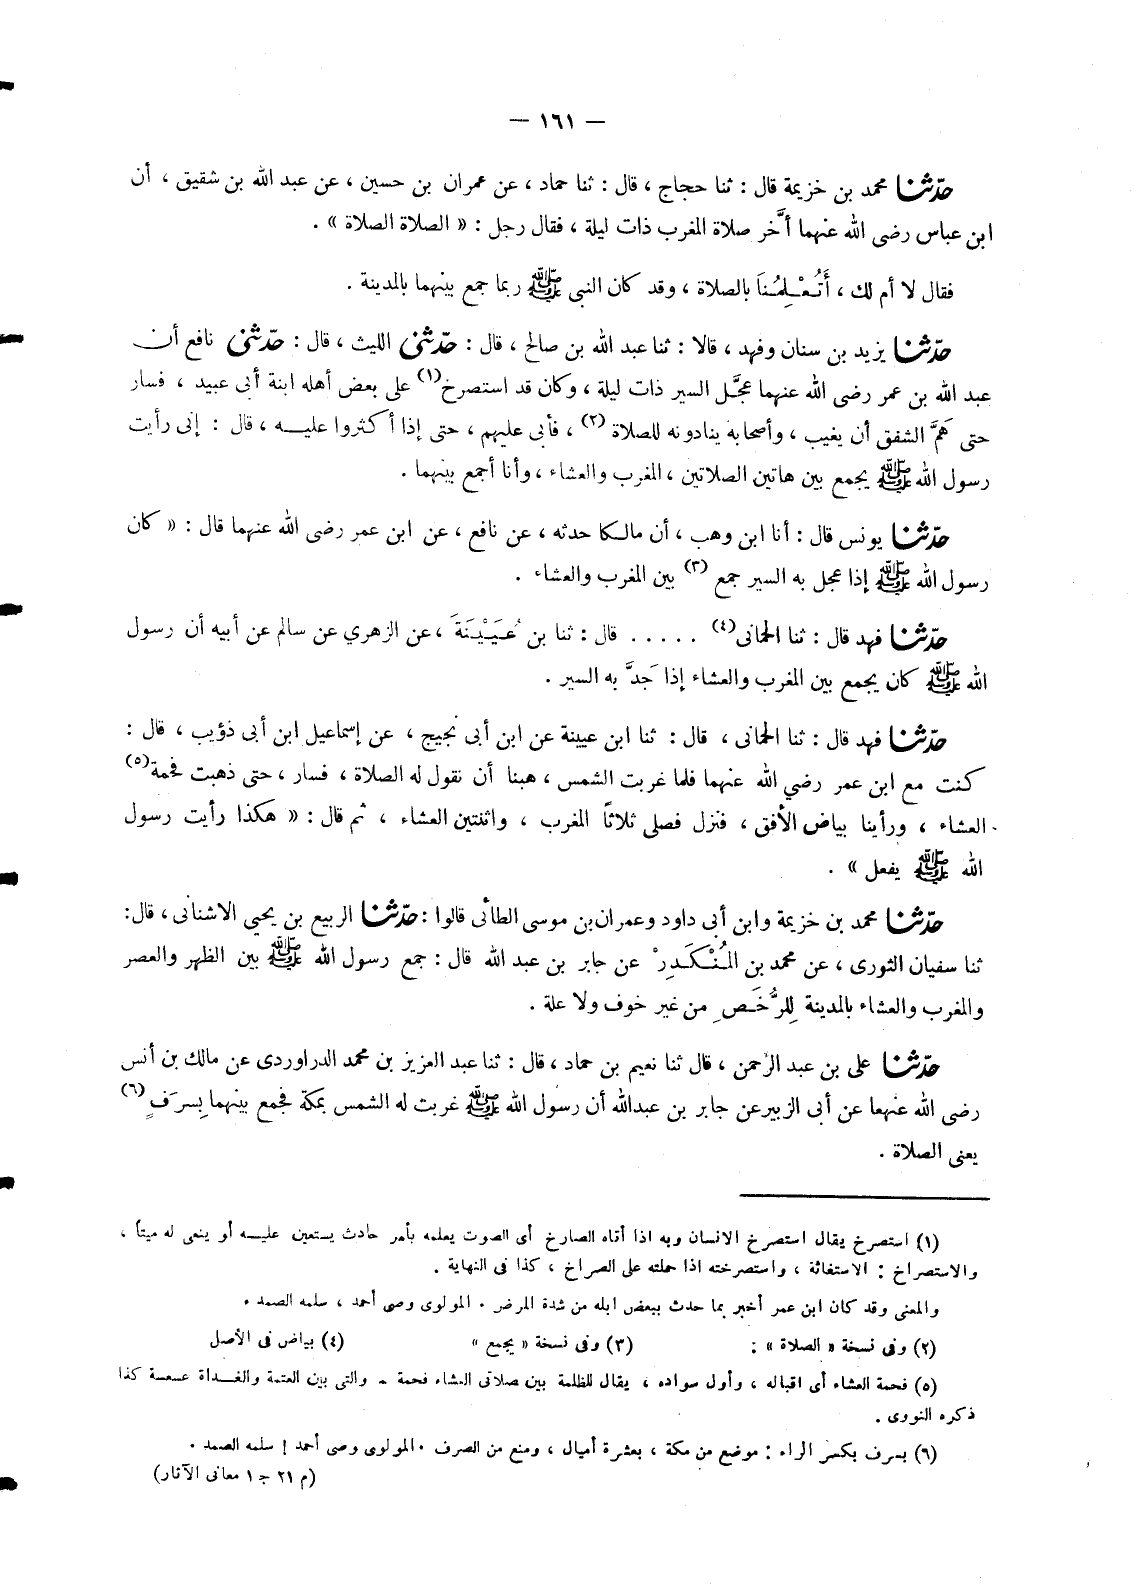 — ١٦١ —
حدّثنا محمد بن خزيمة قال : ثنا حجاج ، قال : ثنا حماد ، عن عمران بن حسين ، عن عبد الله بن شقيق ، أن
ابن عباس رضى الله عنهما أخَّر صلاة المغرب ذات ليلة ، فقال رجل : « الصلاة الصلاة » .
فقال لا أم لك ، أَتُعْلِمُنَا بالصلاة ، وقد كان النبى ﷺ ربما جمع بينهما بالمدينة .
حدّثنا يزيد بن سنان وفهد ، قالا : ثنا عبد الله بن صالح ، قال : حدّثنى الليث ، قال : حدّثنى نافع أن
عبد الله بن عمر رضى الله عنهما عجَّل السير ذات ليلة ، وكان قد استصرخ(١) على بعض أهله ابنة أبى عبيد ، فسار
حتى هَمَّ الشفق أن يغيب ، وأصحابه ينادونه للصلاة (٢) ، فأبى عليهم ، حتى إذا أكثروا عليه ، قال : إنى رأيت
رسول الله ﷺ يجمع بين هاتين الصلاتين ، المغرب والعشاء ، وأنا أجمع بينهما .
حدّثنا يونس قال : أنا ابن وهب ، أن مالكا حدثه ، عن نافع ، عن ابن عمر رضى الله عنهما قال : « كان
رسول الله ﷺ إذا عجل به السير جمع (٣) بين المغرب والعشاء .
حدّثنا فهد قال : ثنا الحمانى(٤) ..... قال : ثنا بن عُيَيْنَةَ ، عن الزهري عن سالم عن أبيه أن رسول
الله ﷺ كان يجمع بين المغرب والعشاء إذا جَدَّ به السير .
حدّثنا فهد قال : ثنا الحمانى ، قال : ثنا ابن عيينة عن ابن أبى نجيح ، عن إسماعيل ابن أبى ذؤيب ، قال :
كنت مع ابن عمر رضي الله عنهما فلما غربت الشمس ، هبنا أن نقول له الصلاة ، فسار ، حتى ذهبت فحمة(٥)
العشاء ، ورأينا بياض الأفق ، فنزل فصلى ثلاثاً المغرب ، واثنتين العشاء ، ثم قال : « هكذا رأيت رسول
الله ﷺ يفعل » .
حدّثنا محمد بن خزيمة وابن أبى داود وعمران بن موسى الطائى قالوا : حدّثنا الربيع بن يحيى الاشنانى ، قال :
ثنا سفيان الثورى ، عن محمد بن المُنْكَدِرْ عن جابر بن عبد الله قال : جمع رسول الله ﷺ بين الظهر والعصر
والمغرب والعشاء بالمدينة لِلرُّخَصِ من غير خوف ولا علة .
حدّثنا على بن عبد الرحمن ، قال ثنا نعيم بن حماد ، قال : ثنا عبد العزيز بن محمد الدراوردى عن مالك بن أنس
رضى الله عنهما عن أبى الزبير عن جابر بن عبدالله أن رسول الله ﷺ غربت له الشمس بمكة فجمع بينهما بِسرَفٍ (٦)
يعنى الصلاة .
(١) استصرخ يقال استصرخ الانسان وبه اذا أتاه الصارخ أى الصوت يعلمه بأمر حادث يستعين عليه أو ينعى له ميتاً ،
والاستصراخ : الاستغاثة ، واستصرخته اذا حملته على الصراخ ، كذا فى النهاية .
والمعنى وقد كان ابن عمر أخبر بما حدث ببعض ابله من شدة المرض . المولوى وصى أحمد ، سلمه الصمد .
(٢) وفى نسخة « الصلاة » : (٣) وفى نسخة « يجمع » (٤) بياض فى الأصل
(٥) فحمة العشاء أى اقباله ، وأول سواده ، يقال للظلمة بين صلاتى العشاء فحمة – والتى بين العتمة والغداة عسعسة كذا
ذكره النووى .
(٦) بسرف بكسر الراء : موضع من مكة ، بعشرة أميال ، ومنع من الصرف . المولوى وصى أحمد ! سلمه الصمد .
(م ٢١ ج ١ معانى الآثار)